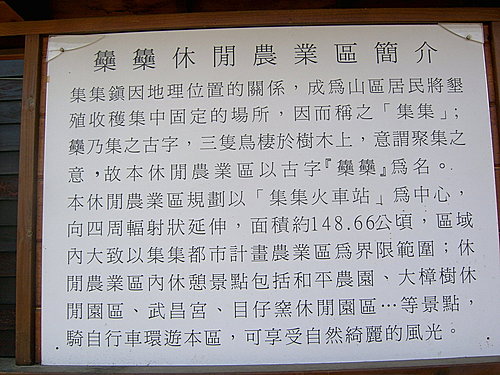 雧雧休閒農業區簡介
集集鎮因地理位置的關係，成為山區居民將墾
殖收穫集中固定的場所，因而稱之「集集」；
雧乃集之古字，三隻鳥棲於樹木上，意謂聚集之
意，故本休閒農業區以古字『雧雧』為名。
本休閒農業區規劃以「集集火車站」為中心，
向四周輻射狀延伸，面積約148.66公頃，區域
內大致以集集都市計畫農業區為界限範圍；休
閒農業區內休憩景點包括和平農園、大樟樹休
閒園區、武昌宮、目仔窯休閒園區…等景點，
騎自行車環遊本區，可享受自然綺麗的風光。